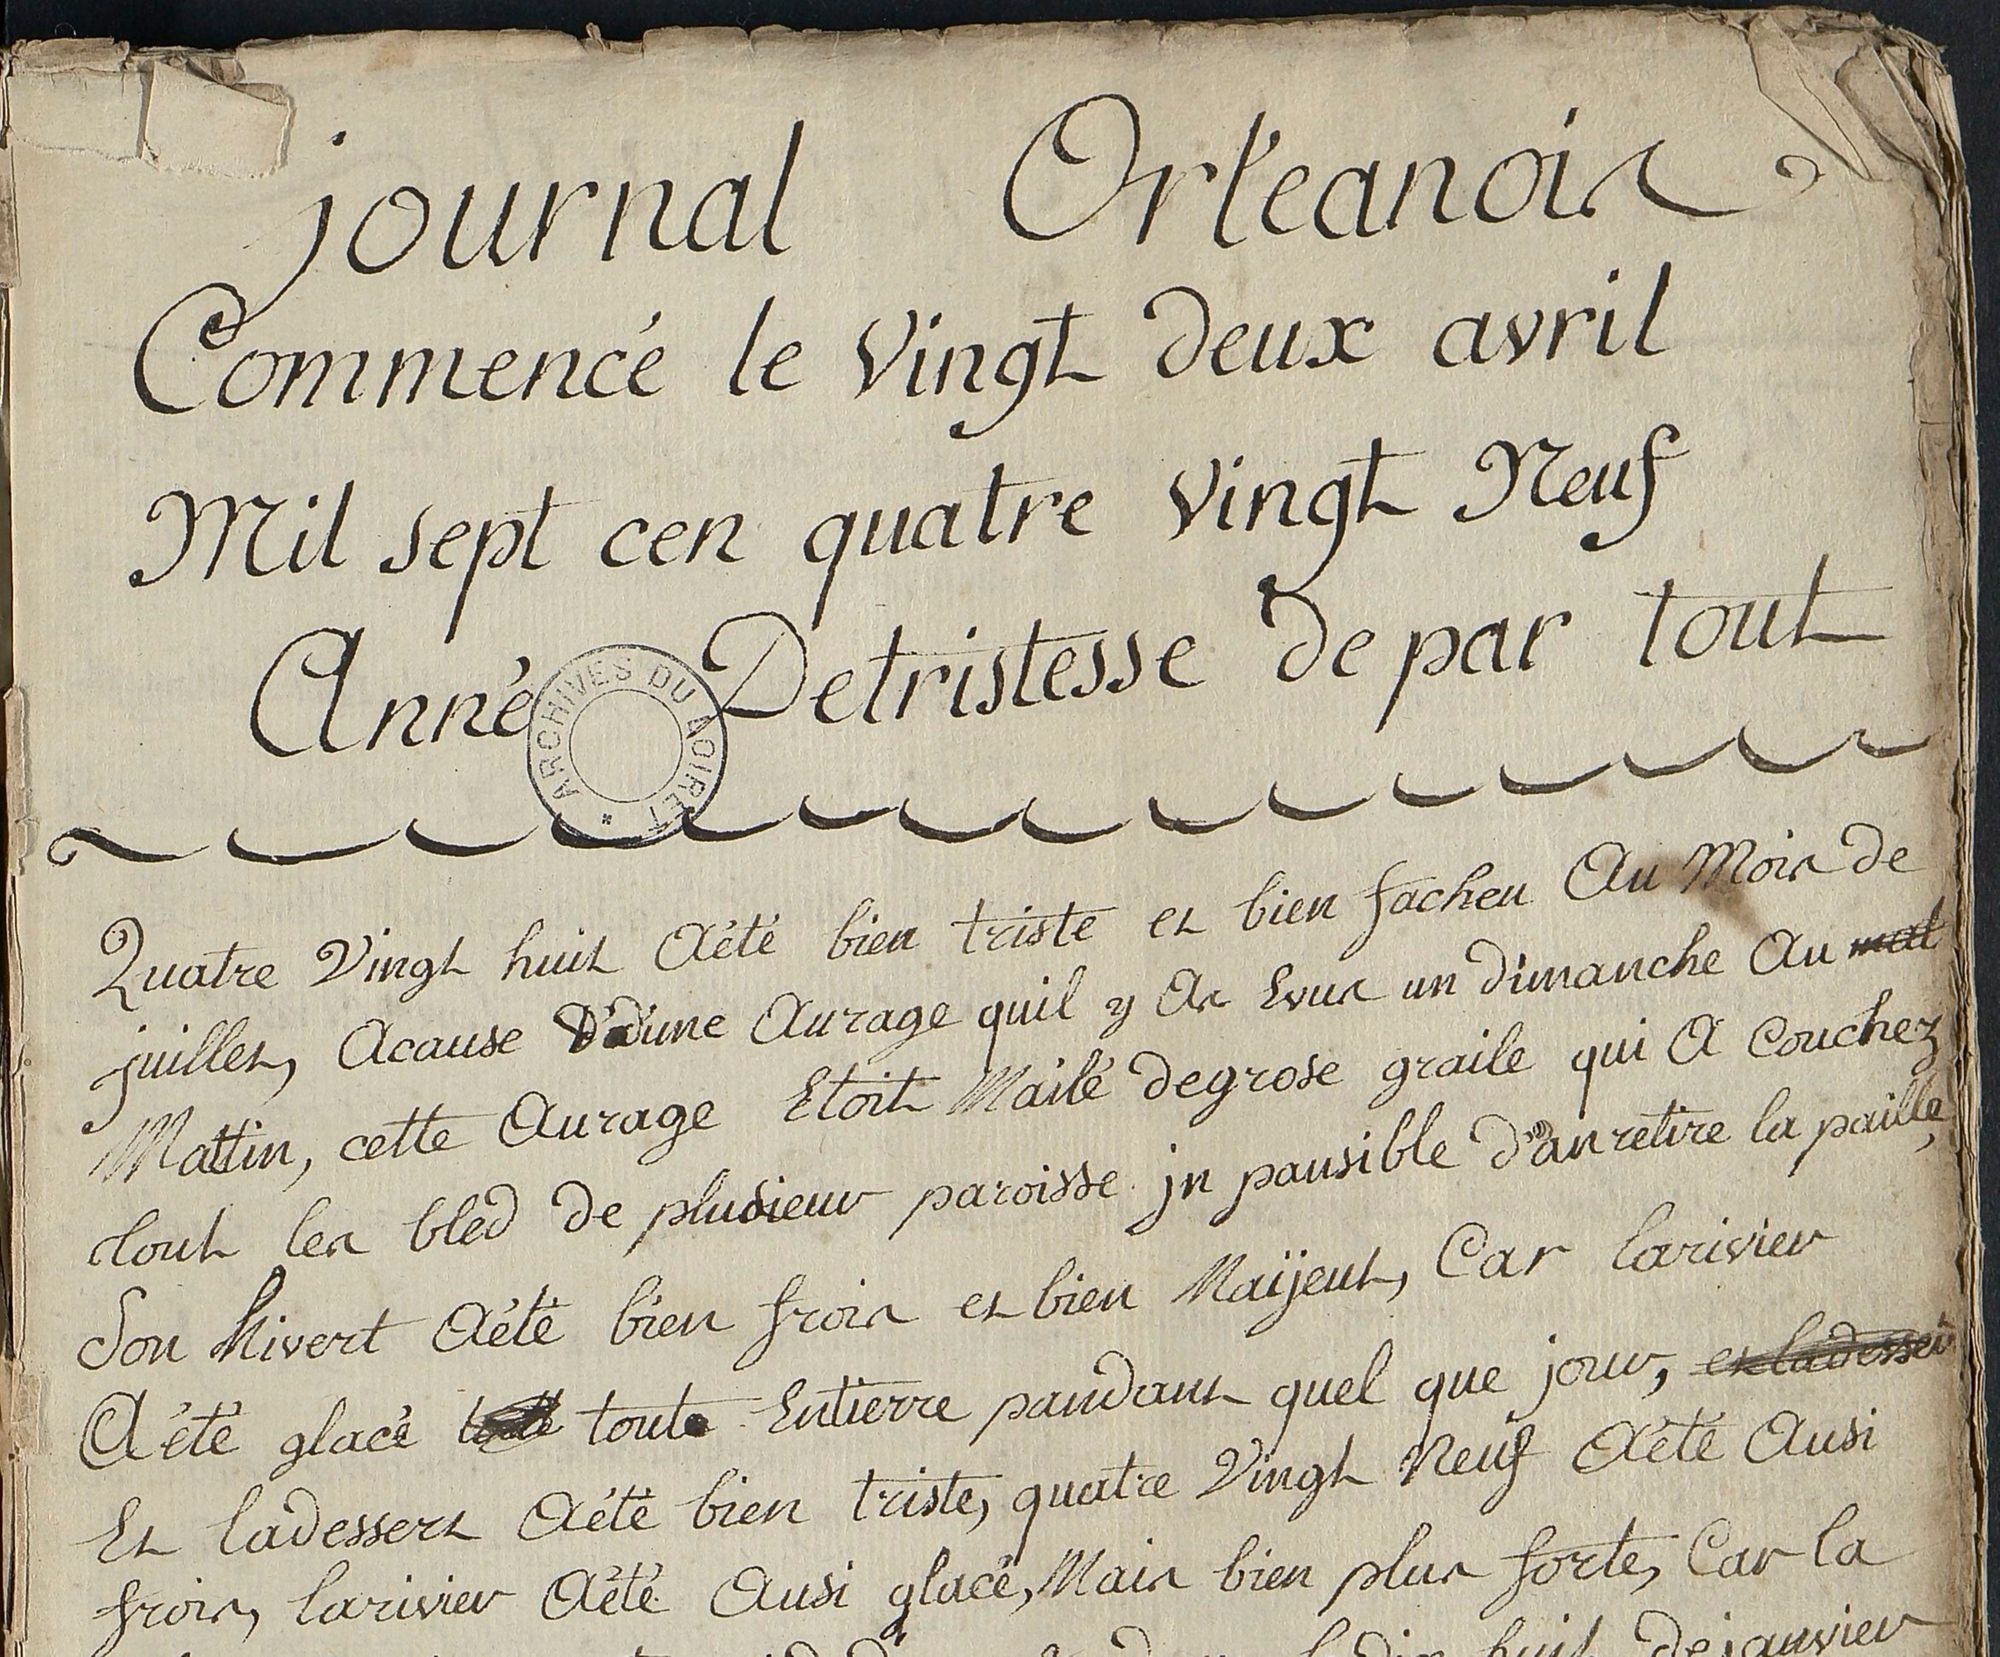 journal Orléanois
Commencé le Vingt deux avril
Mil sept cen quatre vingt Neuf
Année Detristesse de par tout
ARCHIVES DU LOIRET *
Quatre Vingt huit Aété bien triste et bien facheu Au Mois de
juillet, Acause D'dune Aurage quil y As Evus un dimanche Au mat
Mattin, cette Aurage Etoit Mailé degrose graile qui A Couchez
tout les bled de plusieur paroisse jn pausible d'an retire la paille,
Son hivert Aété bien frois et bien Naijeut, Car larivier
Aété glacé toute Entierre pandant quel que jour, et ladesseu
Et ladessert Aété bien triste, quatre Vingt Neuf Aété Ausi
frois, larivier Aété Ausi glacé, Mais bien plus forte, Car la
dix huit dejanvier